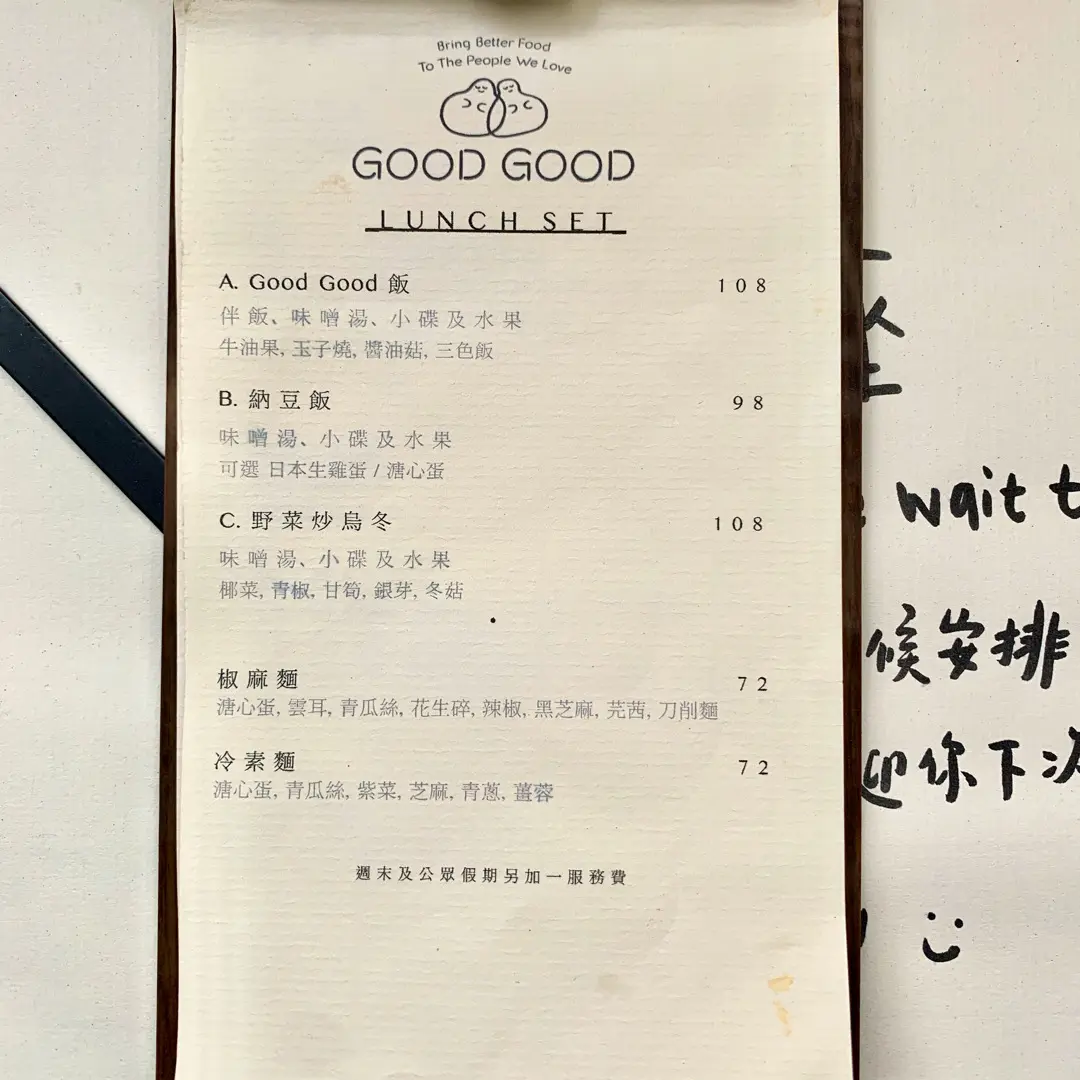 Bring Better Food
To The People We Love
GOOD GOOD
LUNCH SET
A. Good Good 飯 108
伴飯、味噌湯、小碟及水果
牛油果, 玉子燒, 醬油菇, 三色飯
B. 納豆飯 98
味噌湯、小碟及水果
可選 日本生雞蛋 / 溏心蛋
C. 野菜炒烏冬 108
味噌湯、小碟及水果
椰菜, 青椒, 甘筍, 銀芽, 冬菇
椒麻麵 72
溏心蛋, 雲耳, 青瓜絲, 花生碎, 辣椒, 黑芝麻, 芫茜, 刀削麵
冷素麵 72
溏心蛋, 青瓜絲, 紫菜, 芝麻, 青蔥, 薑蓉
週末及公眾假期另加一服務費
wait t
候安排
迎你下次